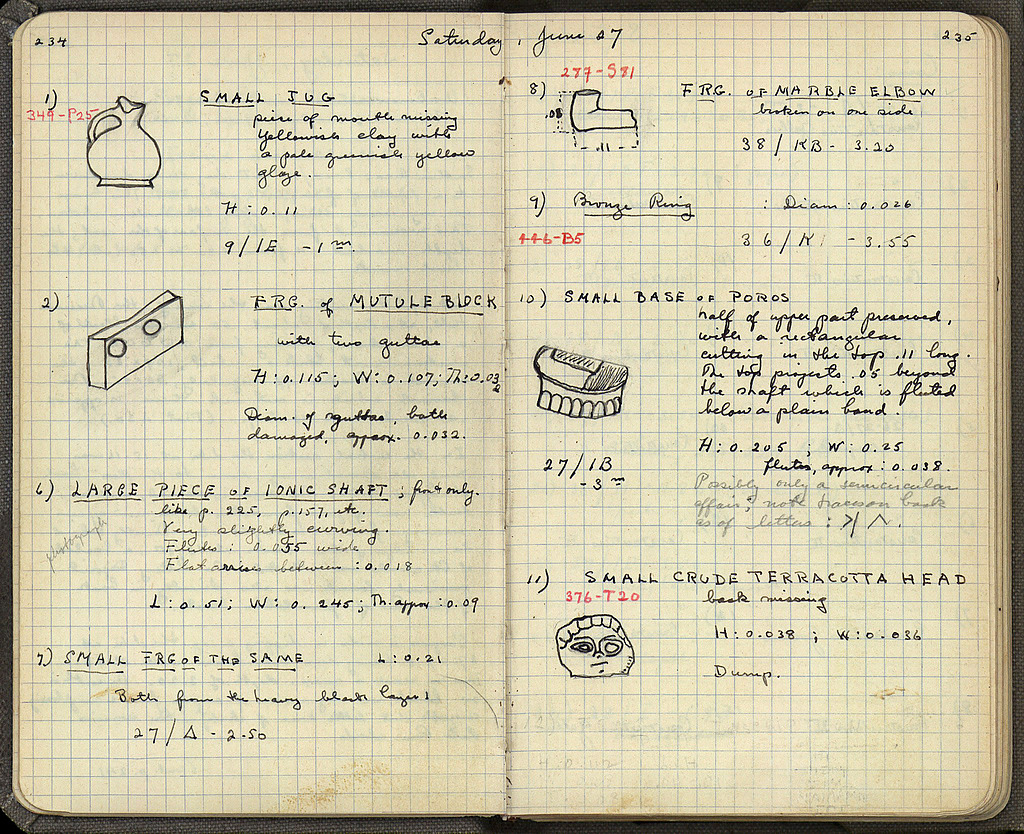 234
Saturday, June 27
1)
349-P25
SMALL JUG
piece of mouth missing
Yellowish clay with
a pale greenish yellow
glaze.
H: 0.11
9/ IE - 1 m.
2)
FRG. of MUTULE BLOCK
with two guttae
H: 0.115; W: 0.107; Th: 0.032
Diam. of guttae, both
damaged, approx. 0.032.
6) LARGE PIECE OF IONIC SHAFT; front only.
like p. 225, p. 157, etc.
photograph
Very slightly curving.
Flutes: 0.055 wide
Flat arrises between: 0.018
L: 0.51; W: 0.245; Th. approx: 0.09
7) SMALL FRG OF THE SAME L: 0.21
Both from the heavy black layer
27/ Δ - 2.50
235
287-S81
8)
FRG. OF MARBLE ELBOW
broken on one side
.08
.11
38/ KB - 3.20
9) Bronze Ring : Diam: 0.026
446-B5
36/ K - 3.55
10) SMALL BASE OF POROS
half of upper part preserved,
with a rectangular
cutting in the top .11 long.
The top projects .05 beyond
the shaft which is fluted
below a plain band.
H: 0.205; W: 0.25
flutes, approx: 0.038.
27/ IB
- 3 m
Possibly only a semicircular
affair; note traces on back
as of letters:
11) SMALL CRUDE TERRACOTTA HEAD
376-T20
back missing
H: 0.038; W: 0.036
Dump.